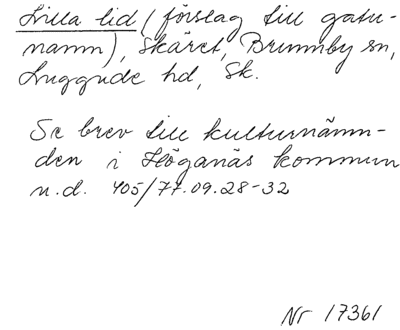 Lilla lid (förslag till gatu-
namn), Skäret, Brunnby sn,
Luggude hd, Sk.
Se brev till kulturnämn-
den i Höganäs kommun
u.d. 405/77.09.28-32
Nr 17361